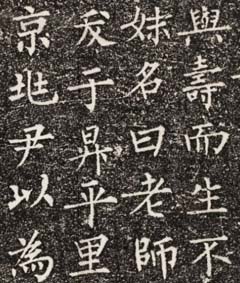 與壽而生不
妹名曰老師
于昇平里
京兆尹以為